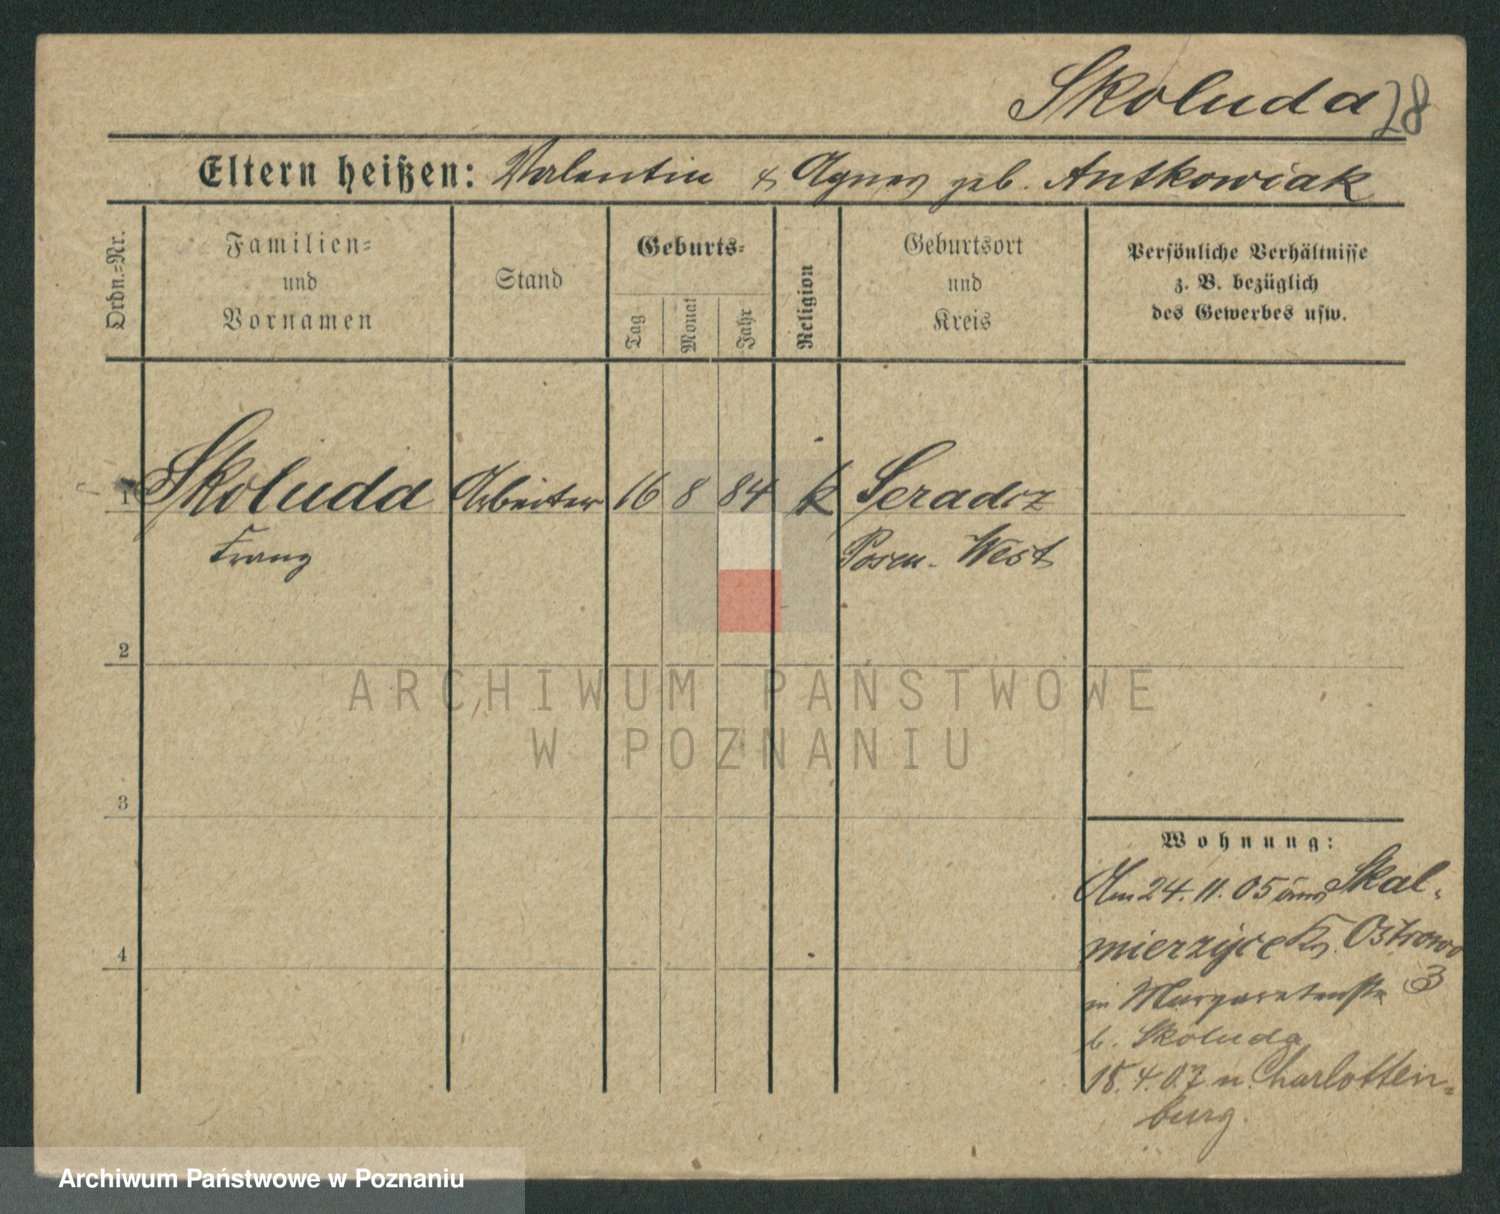 Skoluda
28
Eltern heißen: Valentin & Agnes geb. Antkowiak
Ordn.-Nr.
Familien-
und
Vornamen
Stand
Geburts-
Tag
Monat
Jahr
Religion
Geburtsort
und
Kreis
Persönliche Verhältnisse
z. B. bezüglich
des Gewerbes usw.
1 Skoluda Arbeiter 16 8 84 k Seradz
Franz Posen-West
2
3
4
Wohnung:
Am 24.11.05 aus Skal-
mierzyce Kr. Ostrowo
in Margaretenstr. 3
b. Skoluda
18.4.07. n. Charlotten-
burg.
ARCHIWUM PAŃSTWOWE
W POZNANIU
Archiwum Państwowe w Poznaniu